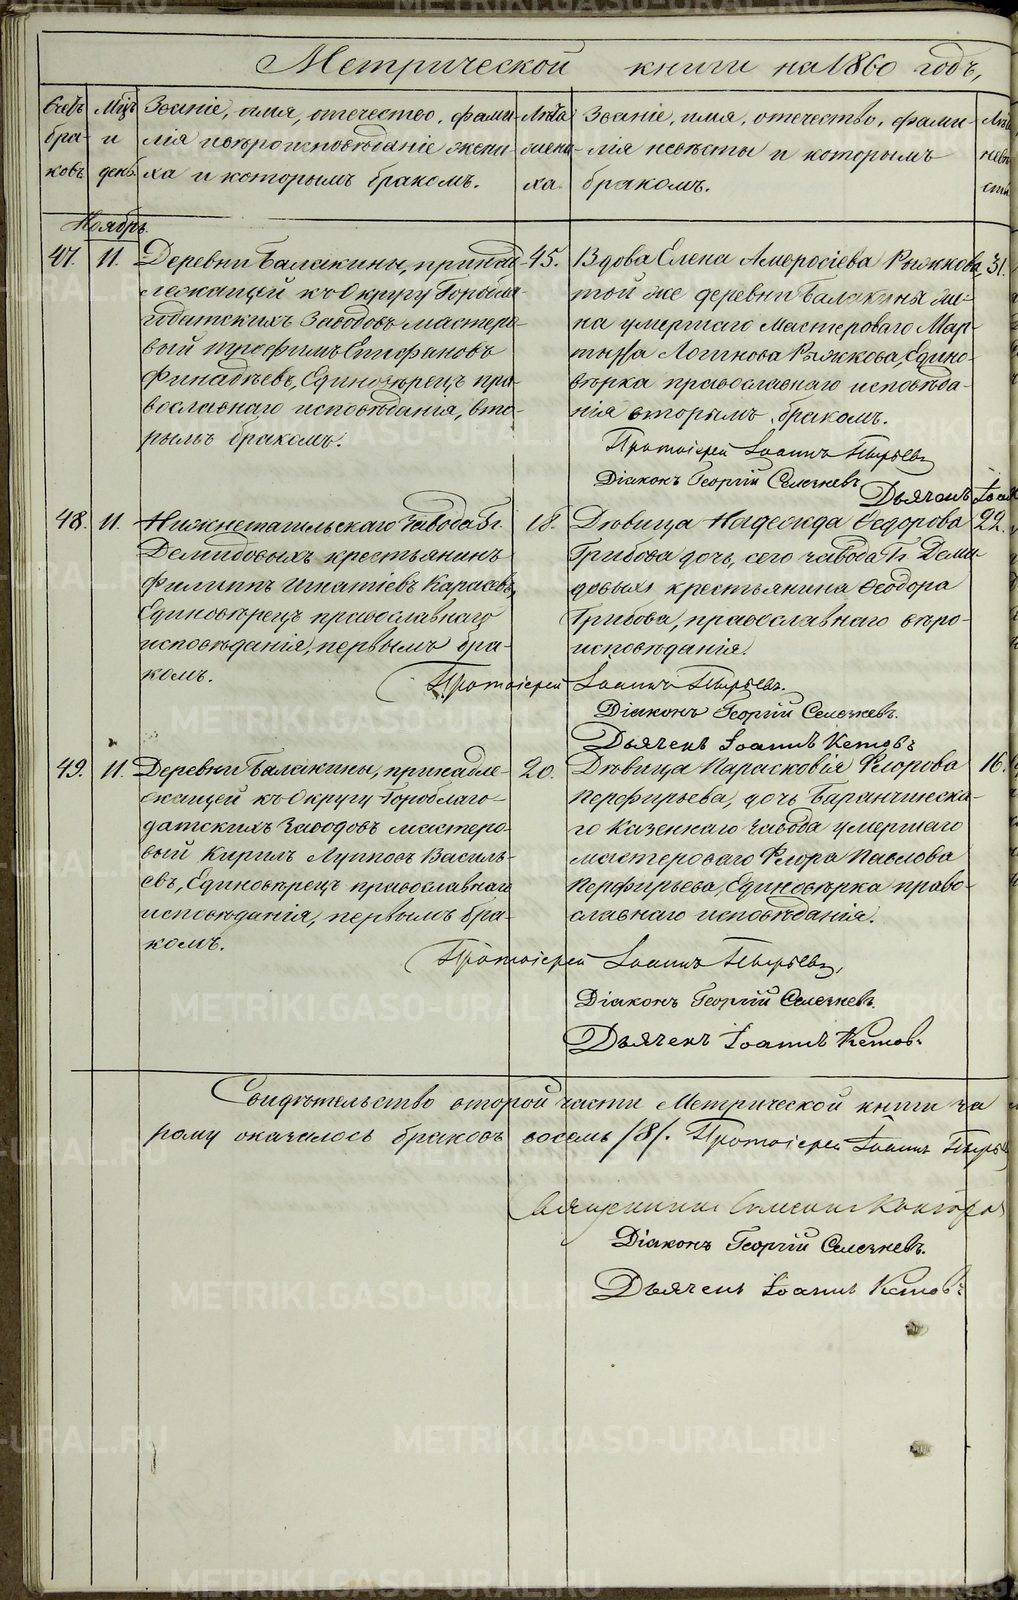 Метрической книги на 1860 годъ,
Счетъ браковъ
Мцъ и день.
Званіе, имя, отечество, фамилія и вѣроисповѣданіе жениха и которымъ бракомъ.
Лѣта жениха.
Званіе, имя, отечество, фамилія невѣсты и которымъ бракомъ.
Ноябрь
47. 11.
Деревни Балакины, принад
лежащей къ Округу Горобла-
годатскихъ Заводовъ мастеро-
вый Трофимъ Епифановъ
Финадѣевъ, Единовѣрецъ пра-
вославнаго исповѣданія, вто-
рымъ бракомъ.
45.
Вдова Елена Амвросіева Рыжкова,
той же деревни Балакиня же-
на умершаго мастероваго Мар-
тина Логинова Рыжкова, Едино-
вѣрка православнаго исповѣда-
нія вторымъ бракомъ.
31.
Протоіерей Іоаннъ Пырьевъ
Діаконъ Георгій Селезневъ
Дьячекъ
48. 11.
Нижнетагильскаго завода Гг.
Демидовыхъ крестьянинъ
Филиппъ Игнатіевъ
Единовѣрецъ православнаго
исповѣданія, первымъ бра-
комъ.
18.
Дѣвица Надежда Ѳедорова
Грибова дочь, сего завода Гг. Деми
довыхъ крестьянина Ѳеодора
Грибова, православнаго вѣро-
исповѣданія.
22.
Протоіерей Іоаннъ Пырьевъ.
Діаконъ Георгій Селезневъ.
Дьячекъ Іоаннъ Кетовъ
49. 11.
Деревни Балакины, принадле-
жащей къ Округу Гороблаго-
датскихъ Заводовъ мастеро-
вый Кирилъ Лупповъ Василь-
евъ, Единовѣрецъ православнаго
исповѣданія, первымъ бра-
комъ.
20.
Дѣвица Парасковія Флорова
Перфирьева, дочь Баранчинска-
го Казеннаго завода умершаго
мастероваго Флора Павлова
Перфирьева, Единовѣрка право-
славнаго исповѣданія.
16.
Протоіерей Іоаннъ Пырьевъ,
Діаконъ Георгій Селезневъ.
Дьячекъ Іоаннъ Кетовъ.
Свидѣтельство второй части Метрической книги ча
рому оказалось браковъ восемь /8/. Протоіерей Іоаннъ Пырьевъ
Священникъ Симеонъ
Діаконъ Георгій Селезневъ.
Дьячекъ Іоаннъ Кетовъ.
METRIKI.GASO-URAL.RU